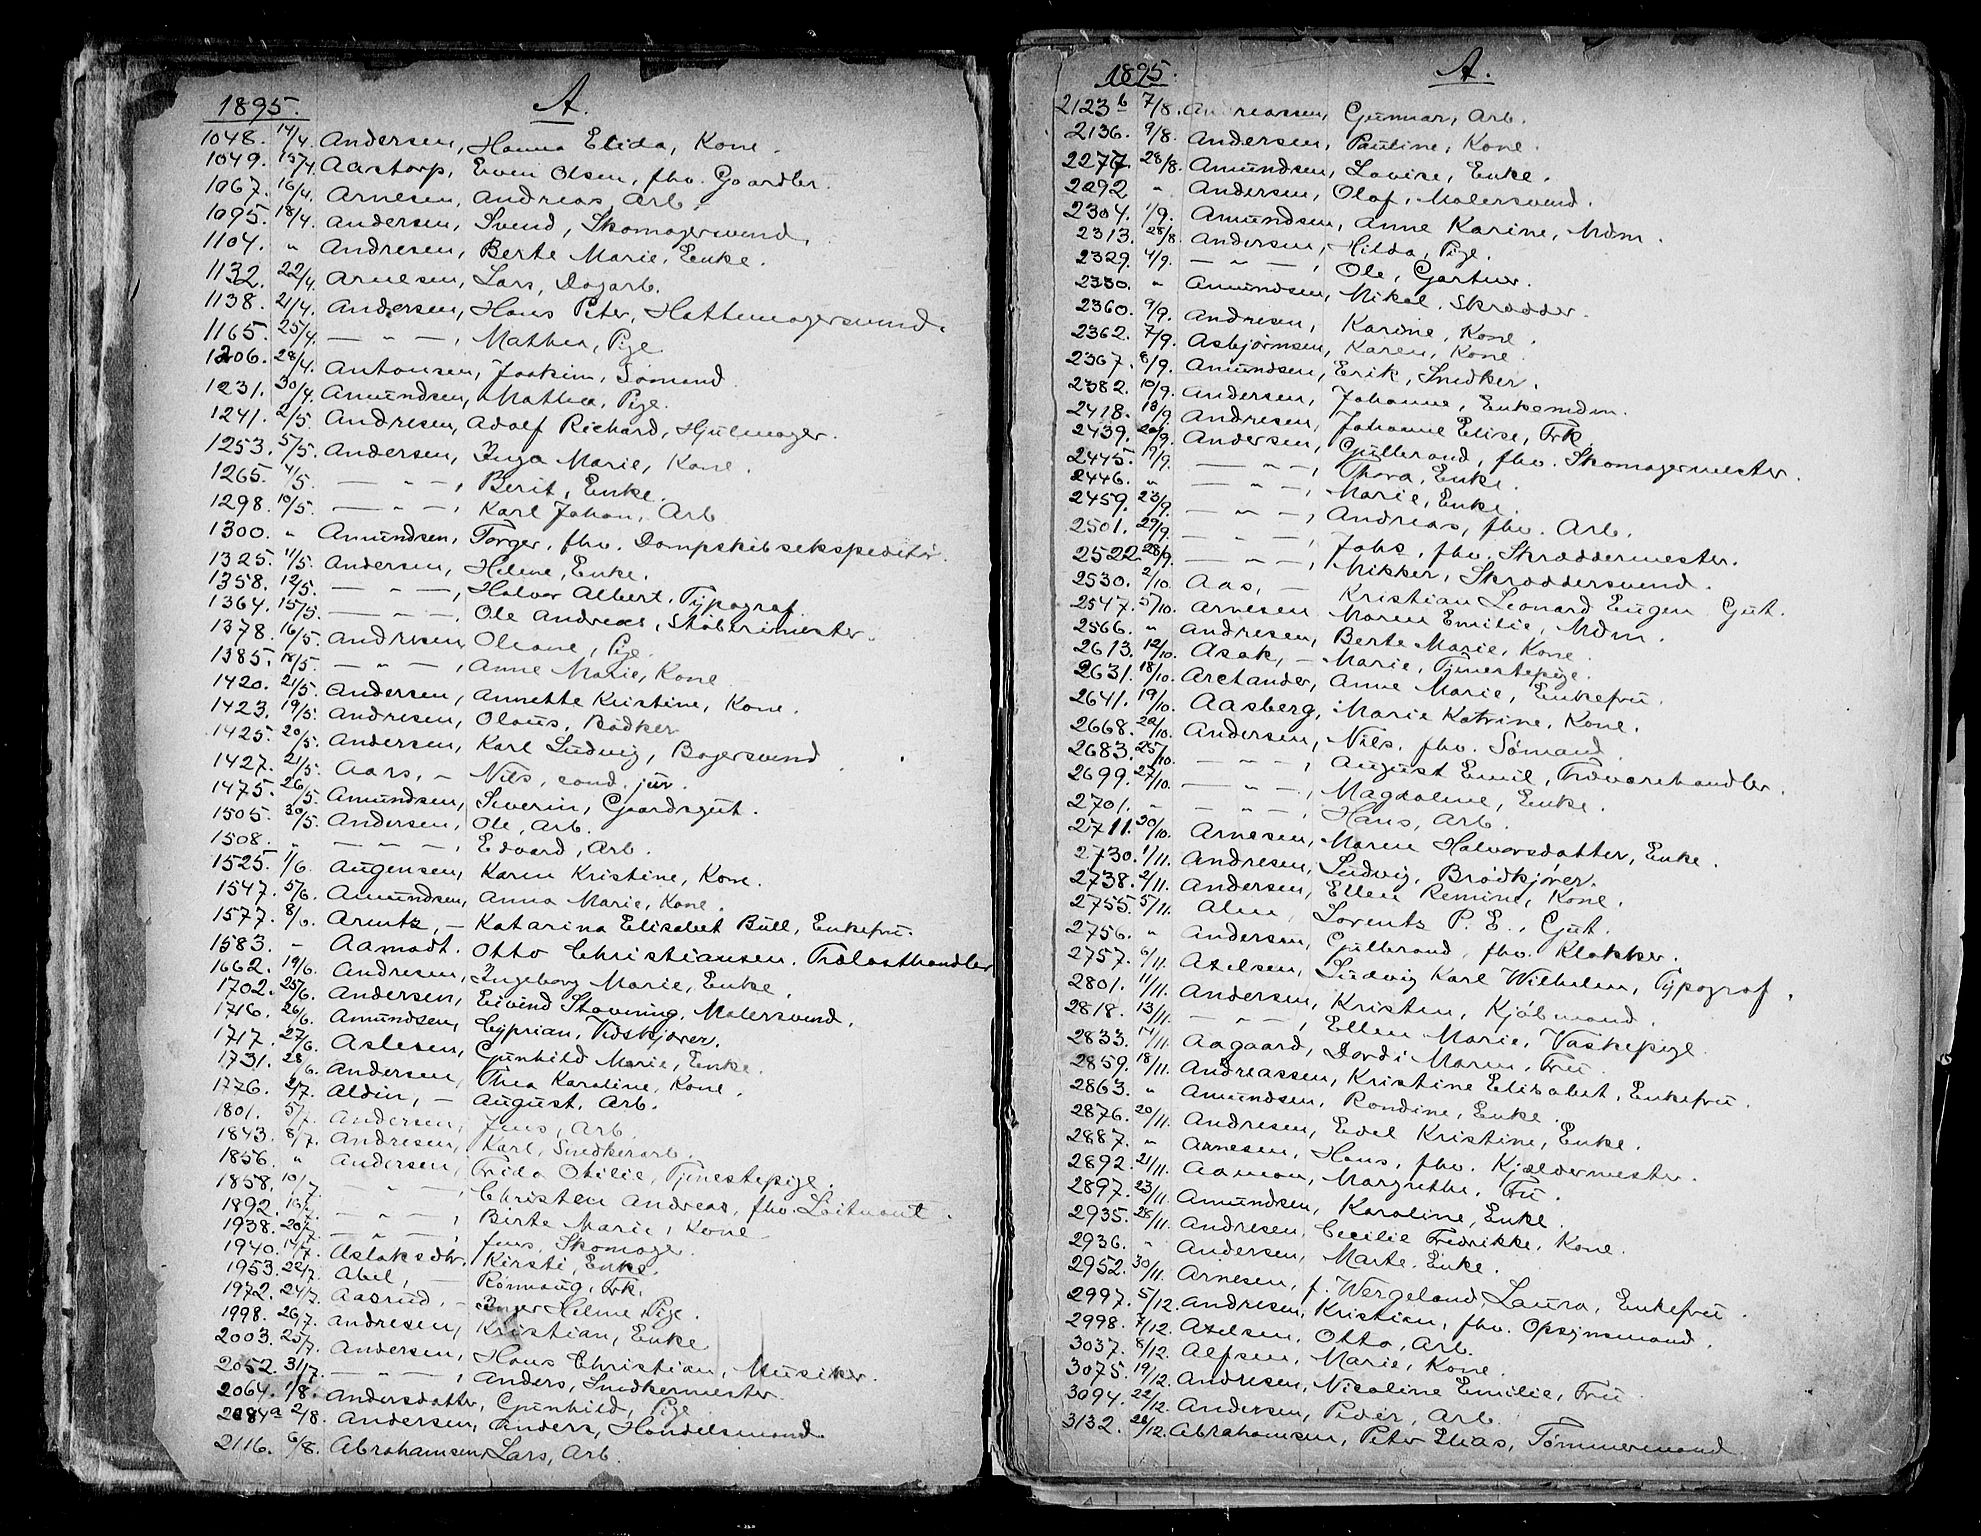 1895. A.
1048. 14/4. Andersen, Hanna Elida, Kone.
1049. 15/4. Aastorp, Even Olsen, fhv. Gaardbr.
1067. 16/4. Arnesen, Andreas, Arb.
1095. 18/4. Andersen, Svend, Skomagersvend.
1104. " Andresen, Berte Marie, Enke.
1132. 22/4. Arnesen, Lars, Dagarb.
1138. 21/4. Andersen, Hans Peter, Hattemagersvend.
1165. 25/4. — " —, Mathea, Pige
1206. 28/4. Antonsen, Joakim, Sømand.
1231. 30/4. Amundsen, Mathea, Pige.
1241. 2/5. Andresen, Adolf Richard, Hjulmager.
1253. 5/5. Andersen, Inga Marie, Kone.
1265. 4/5. — " —, Berit, Enke.
1298. 10/5. — " —, Karl Johan, Arb
1300. " Amundsen, Torger, fhv. Dampskibsekspeditør.
1325. 11/5. Andersen, Helene, Enke.
1358. 12/5. — " —, Halvor Albert, Typograf.
1364. 15/5. — " —, Ole Andreas, Støberimester.
1378. 16/5. Andresen, Oleane, Pige.
1385. 18/5. — " —, Anne Marie, Kone
1420. 21/5. Andersen, Annette Kristine, Kone.
1423. 19/5. Andresen, Olaus, Bødker
1425. 20/5. Andersen, Karl Ludvig, Bagersvend.
1427. 21/5. Aars, — Nils, cand. jur.
1475. 26/5. Amundsen, Severin, Gaardsgut.
1505. 30/5. Andersen, Ole, Arb.
1508. " — " —, Edvard, Arb.
1525. 1/6. Augensen, Karen Kristine, Kone.
1547. 5/6. Amundsen, Anna Marie, Kone.
1577. 8/6. Arentz, — Katarina Elisabet Bull, Enkefru.
1583. " Aamodt. Otto Christiansen. Trælasthandler
1662. 19/6. Andresen, Ingeborg Marie, Enke.
1702. 25/6. Andersen, Eivind Stavning, Malersvend.
1716. 26/6. Amundsen, Cyprian, Vedskjører.
1717. 27/6. Aslesen, Gunhild Marie, Enke.
1731. 28/6. Andersen, Thea Karoline, Kone.
1776. 2/7. Aldin, — August, Arb.
1801. 5/7. Andersen, Jens, Arb.
1843. 8/7. Andresen, Karl, Snedkerarb.
1856. " Andersen, Frida Otilie, Tjenestepige.
1858. 10/7. — " —, Christen Andreas, fhv. Løitnant.
1892. 13/7. — " —, Birte Marie, Kone
1938. 20/7. — " —, Jens, Skomager.
1940. 17/7. Aslaksdtr. Kirsti, Enke.
1953. 22/7. Abel, — Rønnaug, Frk.
1972. 24/7. Aasrud, — Inger Helene, Pige.
1998. 26/7. Andresen, Kristian, Enke
2003. 25/7. Andersen, Hans Christian, Musiker.
2052. 31/7. — " —, Anders, Snedkermester.
2064. 1/8. Andersdatter, Gunhild, Pige
2084a 2/8. Andersen, Anders, Handelsmand.
2116. 6/8. Abrahamsen, Lars, Arb.
1895. A.
2123b 7/8. Andreassen, Gunnar, Arb.
2136. 9/8. Andersen, Pauline, Kone.
2277. 28/8. Amundsen, Lovise, Enke.
2292 " Andersen, Olaf, Malersvend.
2304. 1/9. Amundsen, Anne Karine, Mdm.
2313. 28/8. Andersen, Hilda, Pige.
2329. 4/9. — " —, Ole, Gartner.
2330. " Amundsen, Mikal, Skrædder.
2360. 9/9. Andresen, Karine, Kone.
2362. 7/9. Asbjørnsen, Karen, Kone.
2367. 8/9. Amundsen, Erik, Snedker.
2382. 10/9. Andersen, Johanne, Enkemdm.
2418. 18/9. Andresen, Johanne Elise, Frk.
2439. 20/9. Andersen, Gulbrand, fhv. Skomagermester.
2445. 19/9. — " —, Thora, Enke.
2446. " — " —, Marie, Enke.
2459. 23/9. — " —, Andreas, fhv. Arb.
2501. 27/9. — " —, Johs, fhv. Skræddermester.
2522 28/9. — " —, Mikkel, Skræddersvend.
2530. 2/10. Aas, — Kristian Leonard Eugen Gut.
2547. 5/10. Arnesen Maren Emilie, Mdm.
2566. " Andresen, Berte Marie, Kone.
2613. 12/10. Asak, — Marie, Tjenestepige.
2631. 18/10. Arctander, Anne Marie, Enkefru.
2641. 19/10. Aasberg, Marie Katrine, Kone.
2668. 22/10. Andersen, Nils, fhv. Sømand.
2683. 25/10. — " —, August Emil, Fedevarehandler.
2699. 27/10. — " —, Magdalene, Enke.
2701. " — " —, Hans, Arb.
2711. 30/10. Arnesen, Maren Halvorsdatter, Enke.
2730. 1/11. Andresen, Ludvig, Brødkjører.
2738. 2/11. Andersen, Ellen Remine, Kone.
2755. 5/11. Alm, Lorents P. E., Gut.
2756. " Andersen, Gulbrand, fhv. Klokker.
2757. 6/11. Axelsen, Ludvig Karl Wilhelm, Typograf.
2801. 11/11. Andersen, Kristen, Kjøbmand.
2818. 13/11. — " —, Ellen Marie, Vaskepige.
2833. 14/11. Aagaard, Dordi Maren, Fru.
2859. 18/11. Andreassen, Kristine Elisabet, Enkefru.
2863. " Amundsen, Rondine, Enke.
2876. 20/11. Andresen, Edel Kristine, Enke.
2887. " Arnesen, Hans, fhv. Kjældermester.
2892. 21/11. Aaman, Margrethe, Fru.
2897. 23/11. Amundsen, Karoline, Enke.
2935. 28/11. Andresen, Cecilie Fredrikke, Kone.
2936. " Andersen, Marte, Enke.
2952. 30/11. Arnesen, f. Wergeland, Laura, Enkefru.
2997. 5/12. Andresen, Kristian, fhv. Opsynsmand.
2998. 7/12. Axelsen, Otto, Arb.
3037. 8/12. Alfsen, Marie, Kone.
3075. 19/12. Andresen, Nicoline Emilie, Fru.
3094. 22/12. Andersen, Peder, Arb.
3132. 28/12. Abrahamsen, Peter Elias, Tømmermand.